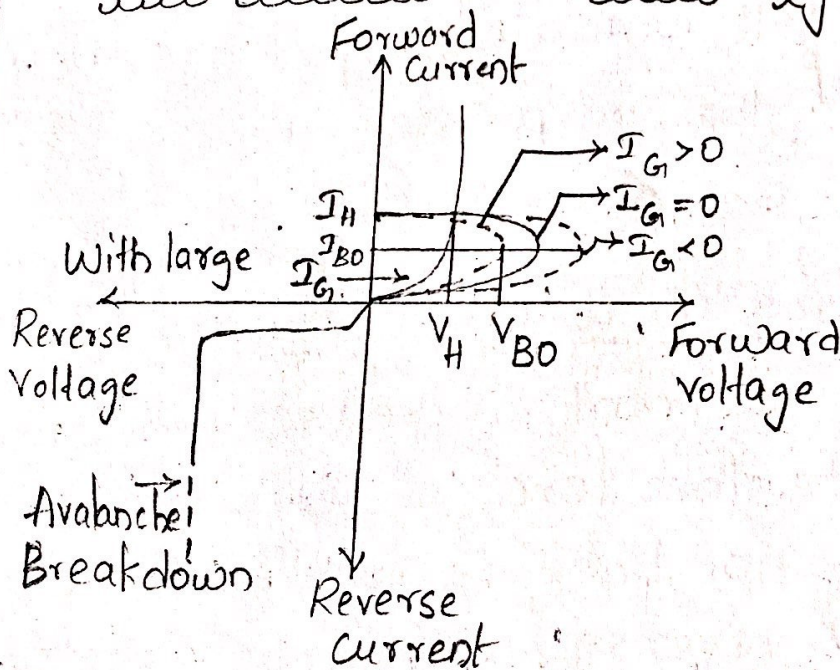 Forward
Current
I_G > 0
I_G = 0
I_G < 0
I_H
I_BO
With large
I_G
Reverse
Voltage
V_H
V_BO
Forward
voltage
Avalanche
Breakdown
Reverse
Current